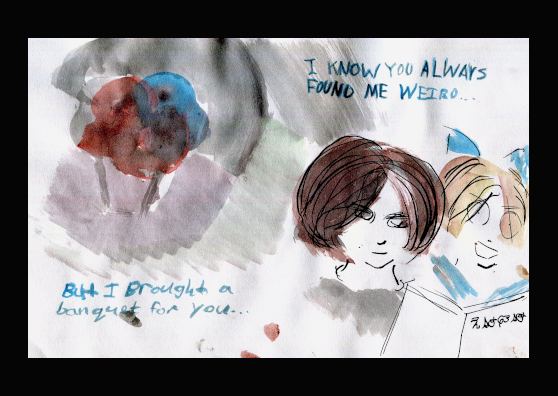 I KNOW YOU ALWAYS
FOUND ME WEIRD...
But I Brought a
banquet for you...